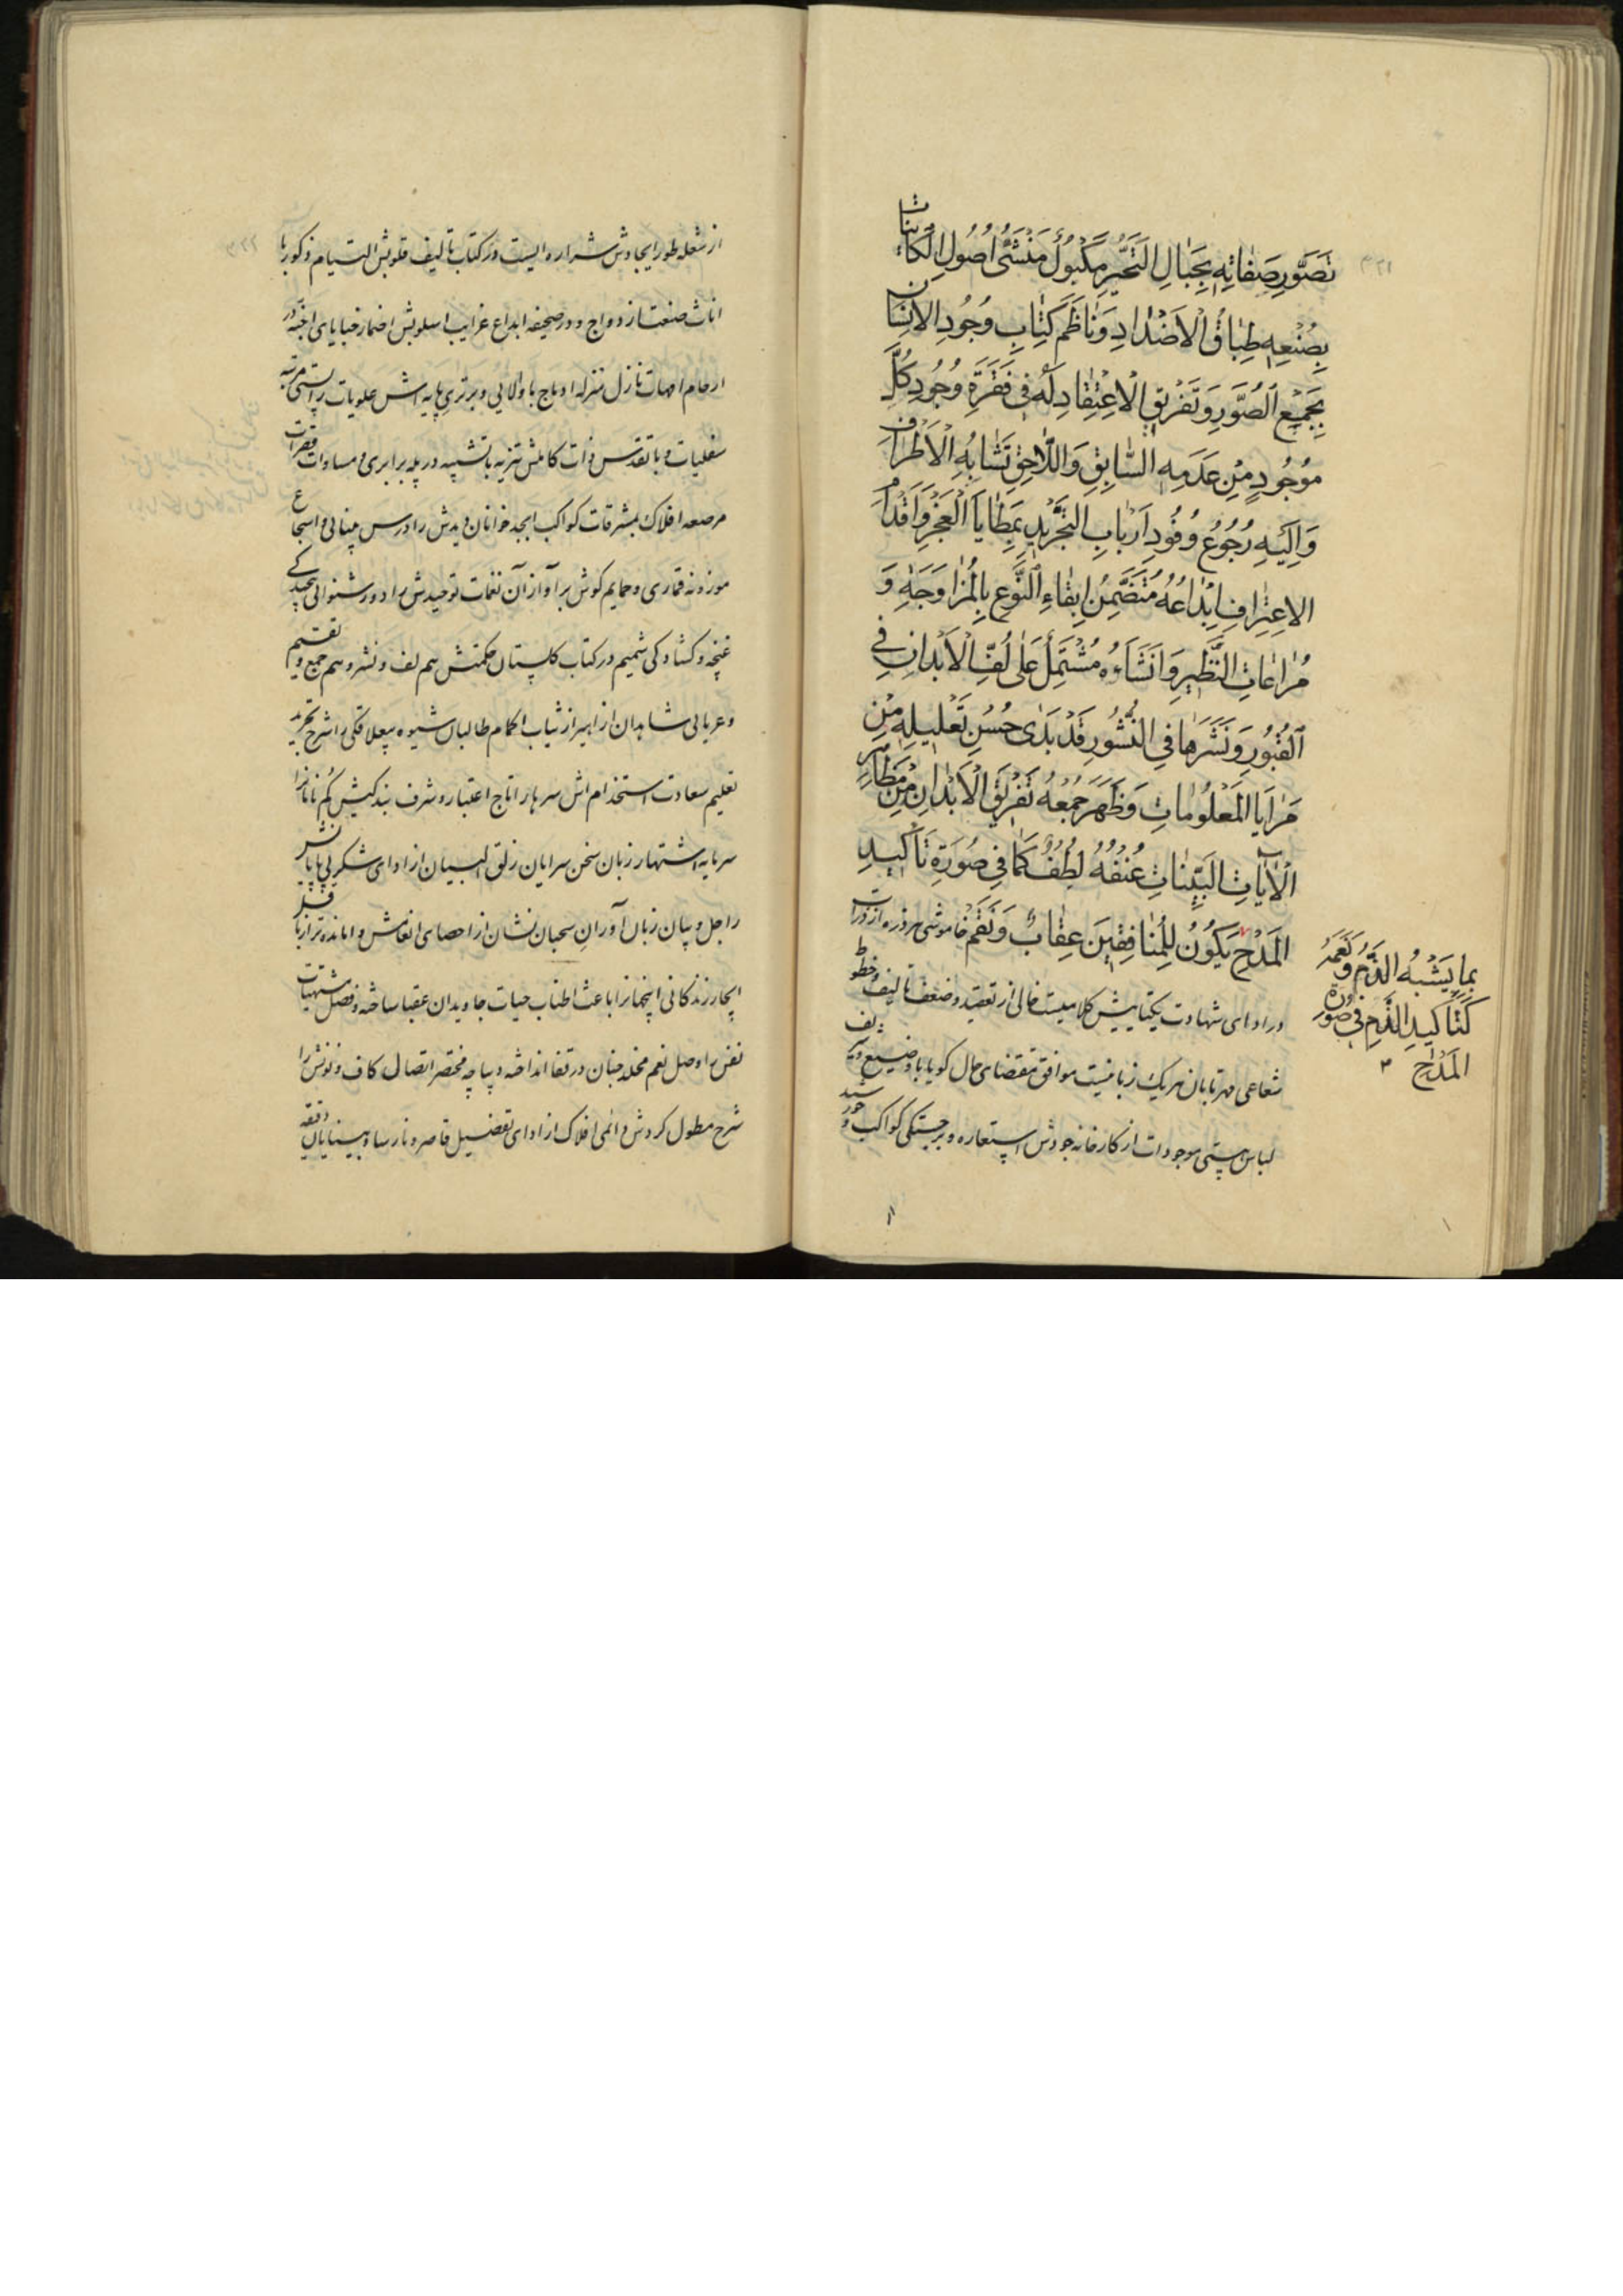 تَصَوَّرِ صَفٰاتِهِ بِحِبٰالِ التَّحَيُّرِ مَكْبُولٌ مَنْشَئُ اُصُولِ الكٰاينات
بِصُنْعِهِ طِبٰاقُ الْاَضْدٰادِ وَنٰاظِمُ كِتٰابِ وُجُودِ الانسٰان
بِجَمْعِ الصُّوَرِ وَتَفْرِيقِ الْاِعْتِقٰادِ لَهُ فِي فَقْرَةِ وُجُودِ كُلِّ
مَوْجُودٍ مِنْ عَدَمِهِ السّٰابِقِ وَاللّٰاحِقِ تَشٰابُهُ الْاَطْرٰاف
وَاِلَيْهِ رُجُوعُ وُفُودِ اَرْبٰابِ التَّجْرِيدِ بِمَطٰايَا الْعَجْزِ وَاَقْدٰام
الاِعْتِرٰافِ اِبْدٰاعُهُ مُتَضَمِّنُ اِبْقٰاءِ النَّوْعِ بِالْمُزٰاوَجَةِ وَ
مُرٰاعٰاتِ النَّظِيرِ وَاِنْشٰاءُهُ مُشْتَمِلٌ عَلٰى لَفِّ الْاَبْدٰانِ فِي
القُبُورِ وَنَشْرِهٰا فِي النُّشُورِ قَدْ بَدٰى حُسْنُ تَعْلِيلِهِ مِنْ
مَرٰايَا الْمَعْلُومٰاتِ وَظَهَرَ جَمْعُهُ تَفْرِيقَ الْاَبْدٰانِ مِنْ مَظٰاهِر
الْاٰيٰاتِ الْبَيِّنٰاتِ عُنْفُهُ لُطْفٌ كَمٰا فِي صُورَةِ تَأكِيدِ
الْمَدْحِ يَكُونُ لِلْمُنٰافِقِينَ عِقٰابٌ وَنَقَمٌ خاموشی هر ذره از ذرات
بِمٰا يَشْبَهُ الذَّمَّ وَنِعَمُهُ
كَتَأكِيدِ الذَّمِ فِي صُورَة
الْمَدْحِ
در ادای شهادت یکتاییش کلامیست خالی از تعقید و ضعف تألیف و خطوط
شعاعی مهر تابان هر یک زبانیست موافق مقتضای حال کویا با وضیع و شریف
لباس هستی موجودات از کارخانه جودش استعاره و برجستکی کواکب و خورشید
از شعله طور ایجادش شراره الیست و در کتاب تالیف قلوبش التیام ذکور با
اناث صنعت ازدواج و در صحیفه ابداع غرایب اسلوبش اضمار خبایای اجنّه در
ارحام امهات نازل منزله ادماج با والایی و برتری پایه اش علویات را پستی مرتبه
سفلیات و با تقدس ذات کاملش تنزیه با تشبیه در پله برابری و مساوات فقرات
مرصعه افلاک بمشرقات کواکب ابجد خوانان دیدش را درس بینائی و اسجاع
موزونه قماری و حمایم کوش بر آوازان نغمات توحیدش را دور شنوائی پیچیدکی
غنچه و کشادکی شمیم در کتاب کلستان حکمتش هم لف و نشر و هم جمع و تقسیم
و عریانی شاهدان ازاهیر از ثیاب اکمام طالبان شیوه بیعلاقکی را شرح تجرید
تعلیم سعادت استخدام اش سرها را تاج اعتبار و شرف بندکیش کم نامانرا
سرمایه اشتهار زبان سخن سرایان زلق البیان از ادای شکر بی پایانش
راجل و بیان زبان آوران سحبان نشان از احصای انعامش وامانده تر از باقل
ایجاز زندکانی اینجهانرا باعث اطناب حیات جاویدان عقبا ساخته و فصل مشتهیات
نفس را وصل نعم مخلد جنان در قفا انداخته دیباچه مختصر اتصال کاف و نونش را
شرح مطول کردش دائمی افلاک از ادای تفضیل قاصر و نارسا و بینایان دقیقه